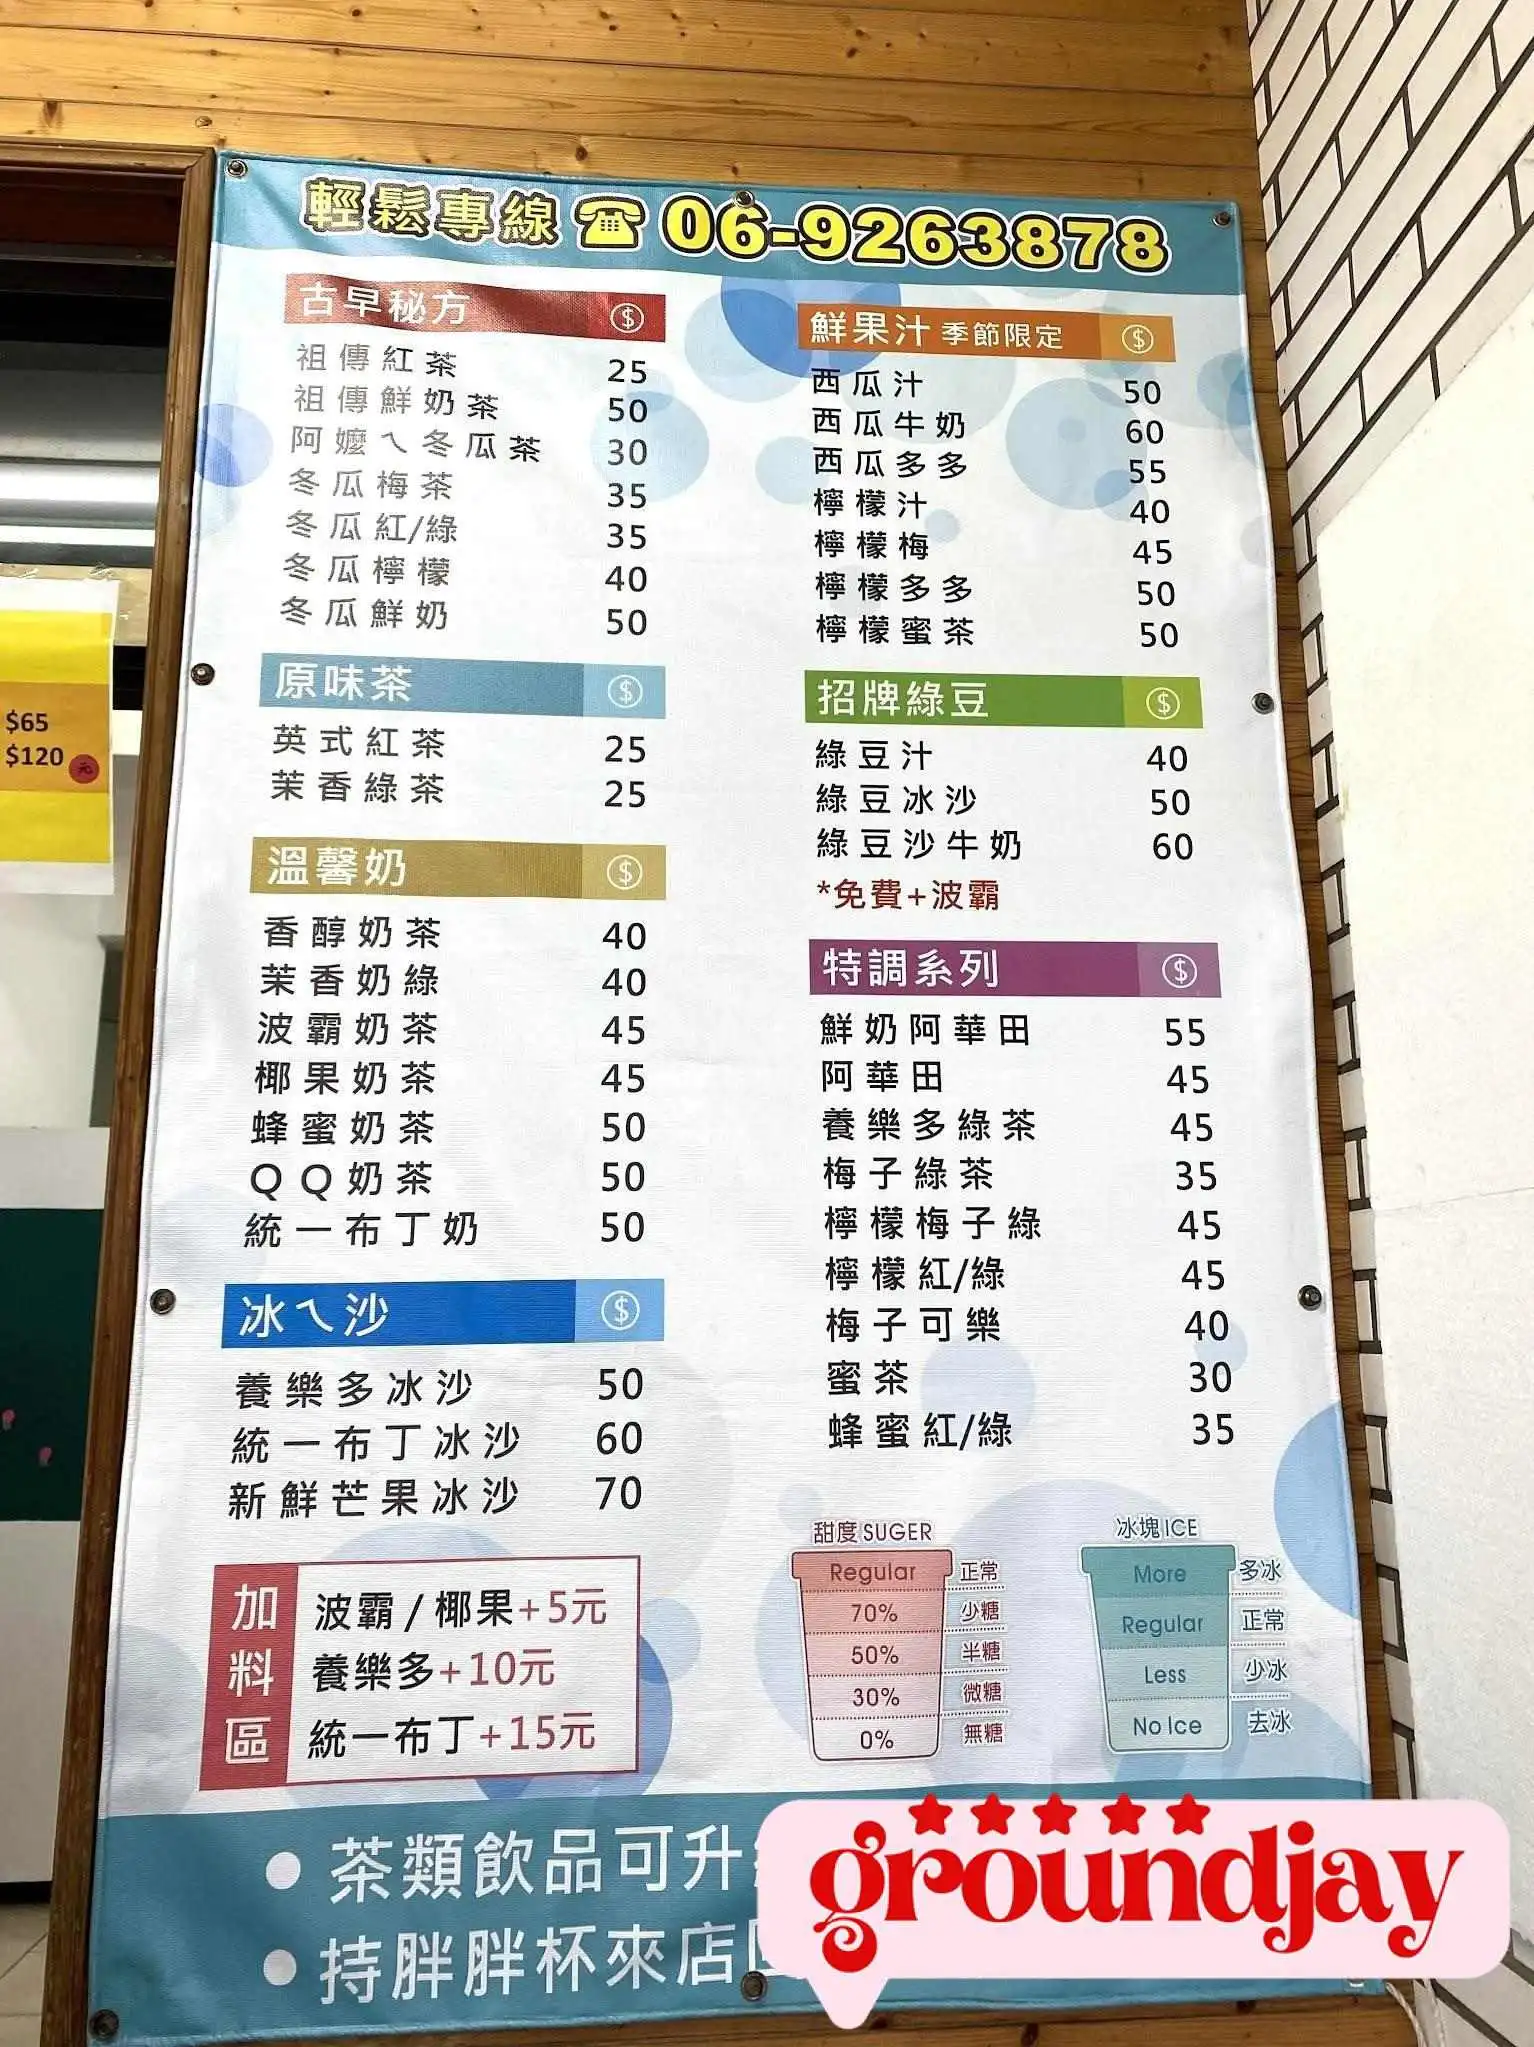 輕鬆專線☎06-9263878
古早秘方 $
祖傳紅茶 25
祖傳鮮奶茶 50
阿嬤ㄟ冬瓜茶 30
冬瓜梅茶 35
冬瓜紅/綠 35
冬瓜檸檬 40
冬瓜鮮奶 50
原味茶 $
英式紅茶 25
茉香綠茶 25
溫馨奶 $
香醇奶茶 40
茉香奶綠 40
波霸奶茶 45
椰果奶茶 45
蜂蜜奶茶 50
QQ奶茶 50
統一布丁奶 50
冰ㄟ沙 $
養樂多冰沙 50
統一布丁冰沙 60
新鮮芒果冰沙 70
加料區
波霸/椰果+5元
養樂多+10元
統一布丁+15元
鮮果汁 季節限定 $
西瓜汁 50
西瓜牛奶 60
西瓜多多 55
檸檬汁 40
檸檬梅 45
檸檬多多 50
檸檬蜜茶 50
招牌綠豆 $
綠豆汁 40
綠豆冰沙 50
綠豆沙牛奶 60
*免費+波霸
特調系列 $
鮮奶阿華田 55
阿華田 45
養樂多綠茶 45
梅子綠茶 35
檸檬梅子綠 45
檸檬紅/綠 45
梅子可樂 40
蜜茶 30
蜂蜜紅/綠 35
甜度 SUGER
Regular 正常
70% 少糖
50% 半糖
30% 微糖
0% 無糖
冰塊 ICE
More 多冰
Regular 正常
Less 少冰
No Ice 去冰
● 茶類飲品可升
● 持胖胖杯來店
$65
$120 元
groundjay